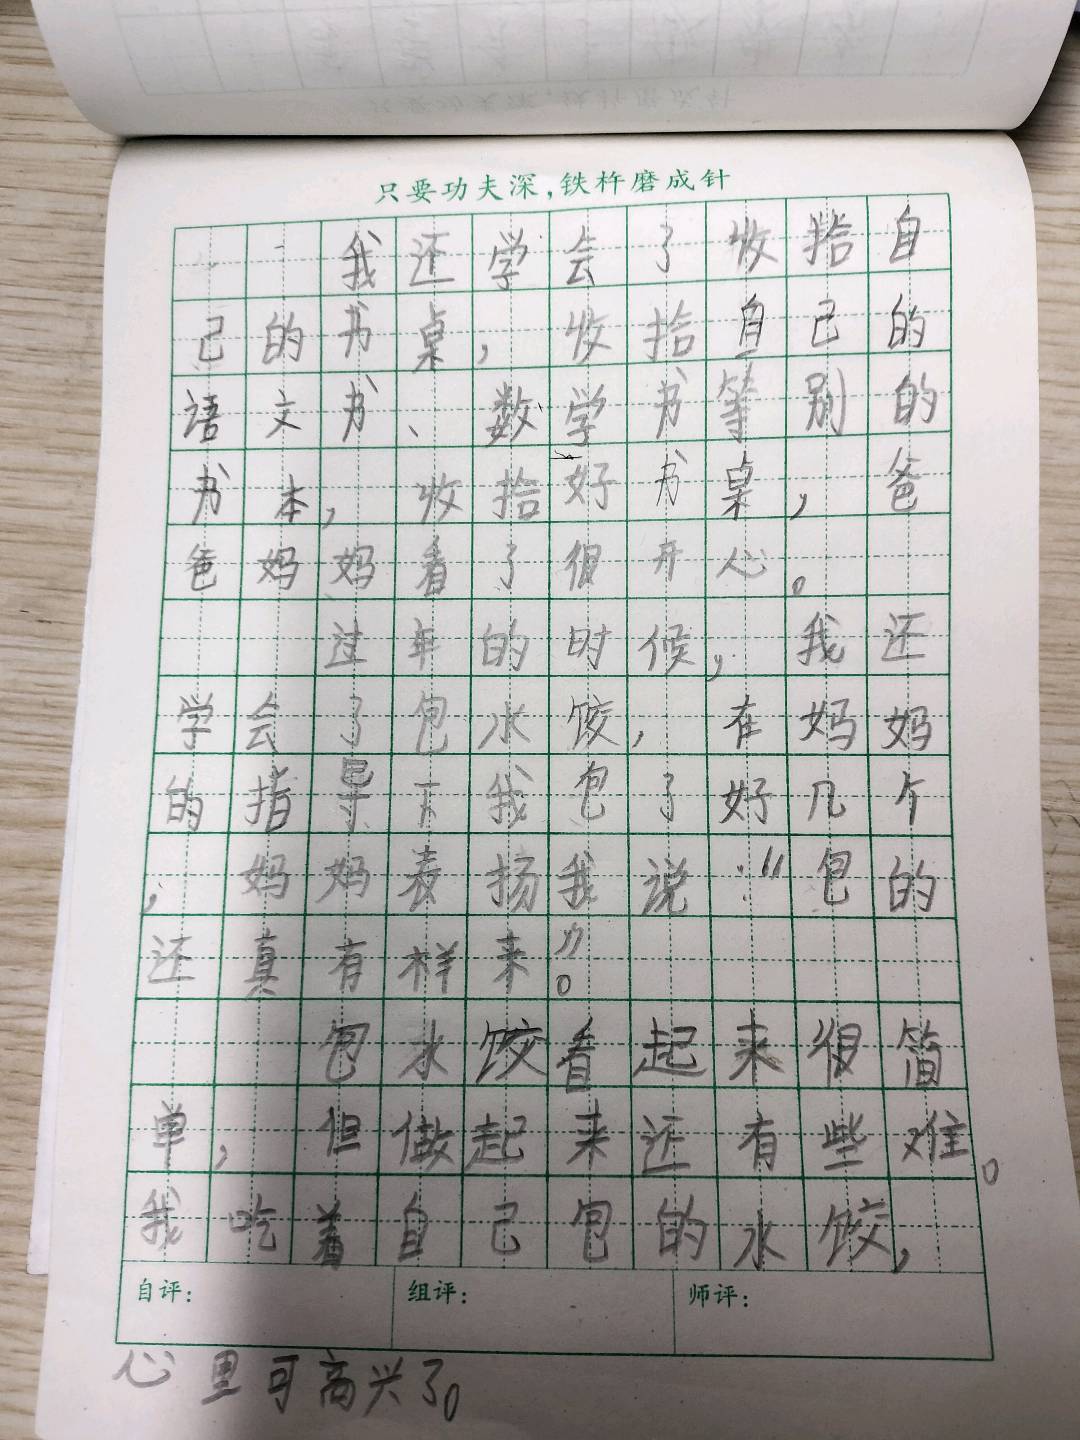 只要功夫深,铁杵磨成针
我还学会了收拾自
己的书桌,收拾自己的
语文书、数学书等别的
书本,收拾好书桌,爸
爸妈妈看了很开心。
过年的时候,我还
学会了包水饺,在妈妈
的指导下我包了好几个
,妈妈表扬我说:“包的
还真有样来”。
包水饺看起来很简
单,但做起来还有些难。
我吃着自己包的水饺,
自评: 组评: 师评:
心里可高兴了。